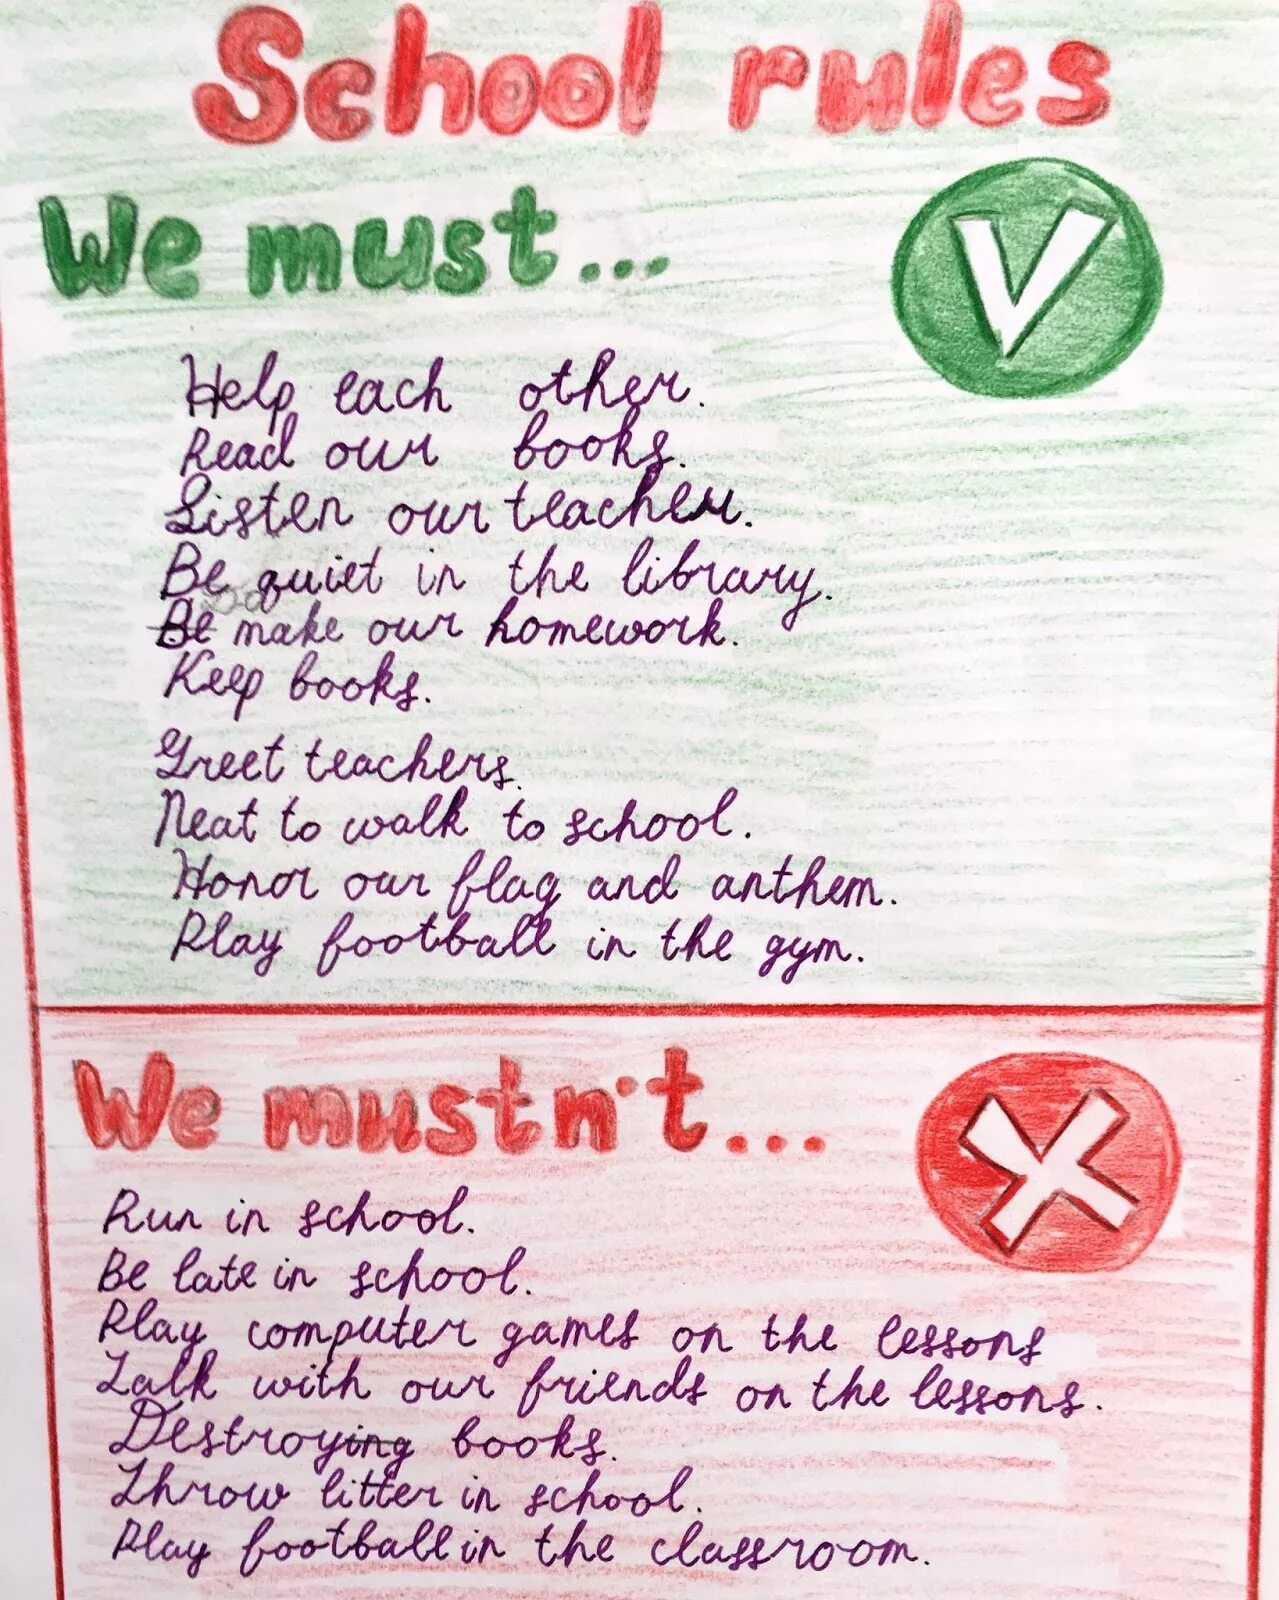 School rules
We must...
V
Help each other.
Read our books.
Listen our teacher.
Be quiet in the library.
Be make our homework.
Keep books.
Greet teachers.
Neat to walk to school.
Honor our flag and anthem.
Play football in the gym.
We mustn't...
X
Run in school.
Be late in school.
Play computer games on the lessons
Talk with our friends on the lessons.
Destroying books.
Throw litter in school.
Play football in the classroom.